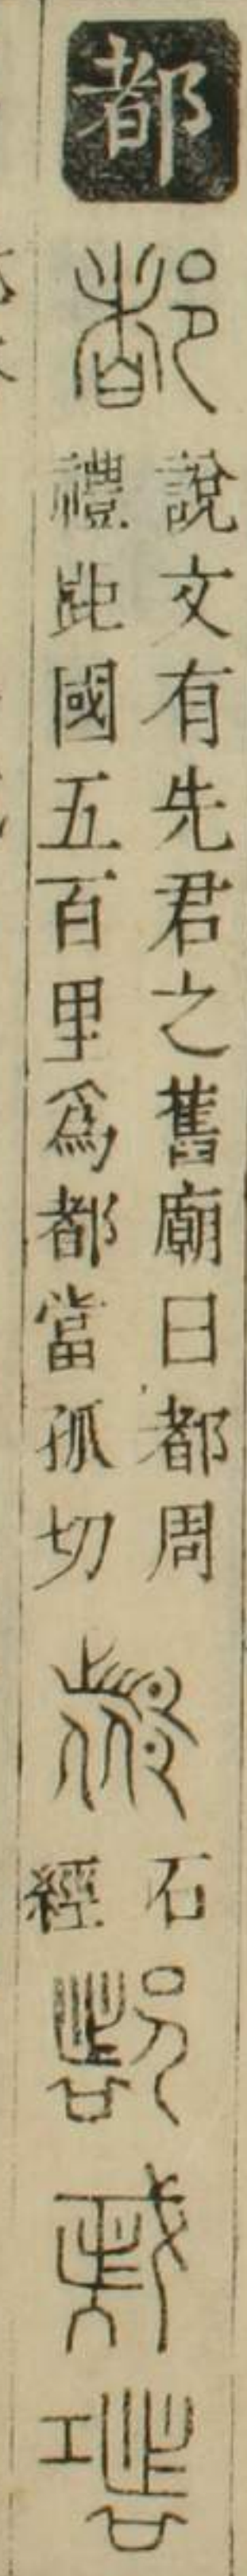 都
說文有先君之舊廟曰都周
禮距國五百里爲都當孤切
石
經